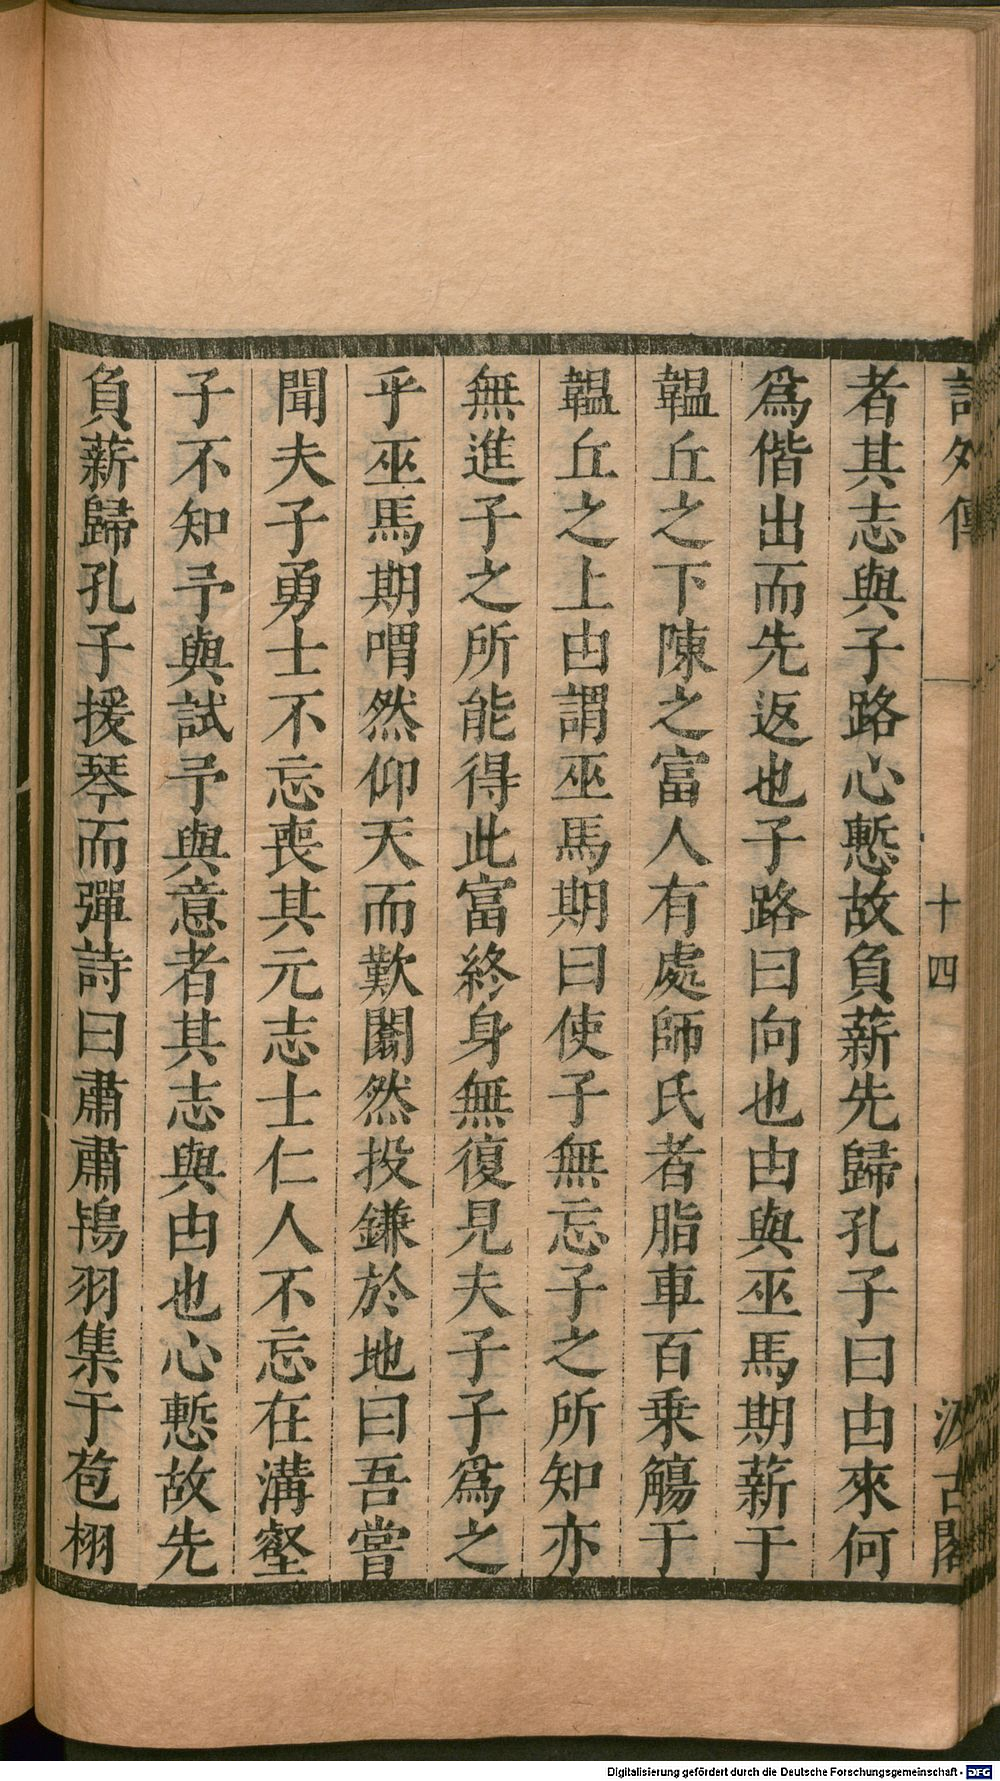 詩外傳
十四
汲古閣
者其志與子路心慙故負薪先歸孔子曰由來何
爲偕出而先返也子路曰向也由與巫馬期薪于
韞丘之下陳之富人有處師氏者脂車百乗觴于
韞丘之上由謂巫馬期曰使子無忘子之所知亦
無進子之所能得此富終身無復見夫子子爲之
乎巫馬期喟然仰天而歎闟然投鎌於地曰吾嘗
聞夫子勇士不忘喪其元志士仁人不忘在溝壑
子不知予與試予與意者其志與由也心慙故先
負薪歸孔子援琴而彈詩曰肅肅鴇羽集于苞栩
Digitalisierung gefördert durch die Deutsche Forschungsgemeinschaft - DFG